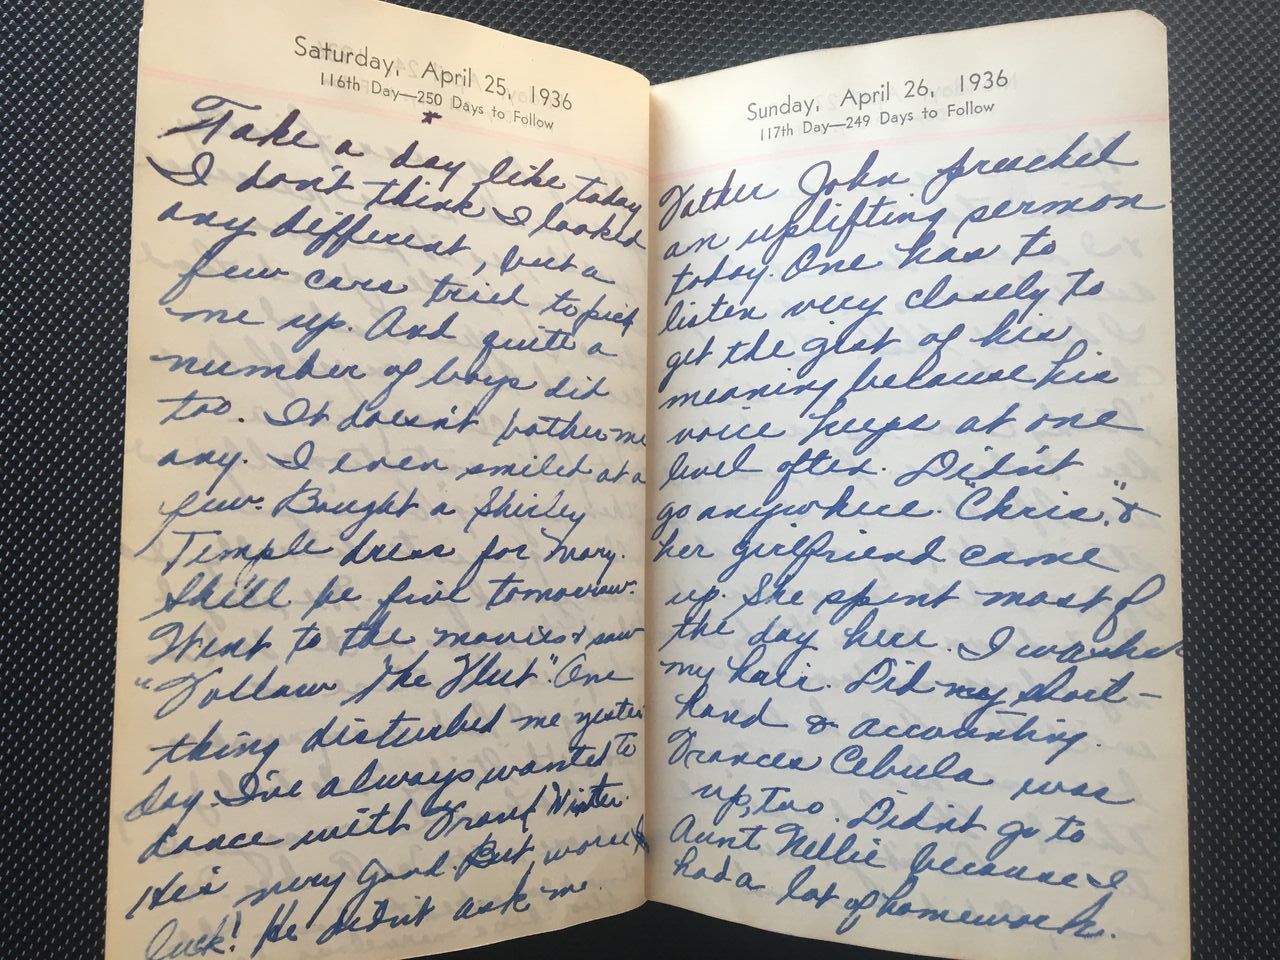 Saturday, April 25, 1936
116th Day—250 Days to Follow
Take a day like today
I don't think I looked
any different, but a
few cars tried to pick
me up. And quite a
number of boys did
too. It doesn't bother me
any. I even smiled at a
few. Bought a Shirley
Temple dress for Mary.
She'll be five tomorrow.
Went to the movies & saw
"Follow The Fleet". One
thing disturbed me yester
day. I've always wanted to
dance with Frank Winter.
He's very good. But, worse
luck! He didn't ask me.
Sunday, April 26, 1936
117th Day—249 Days to Follow
Father John preached
an uplifting sermon
today. One has to
listen very closely to
get the gist of his
meaning because his
voice keeps at one
level often. Didn't
go anywhere. "Chris." &
her girlfriend came
up. She spent most of
the day here. I washed
my hair. Did my short-
hand & accounting.
Frances Cebula was
up, too. Didn't go to
Aunt Nellie because I
had a lot of homework.